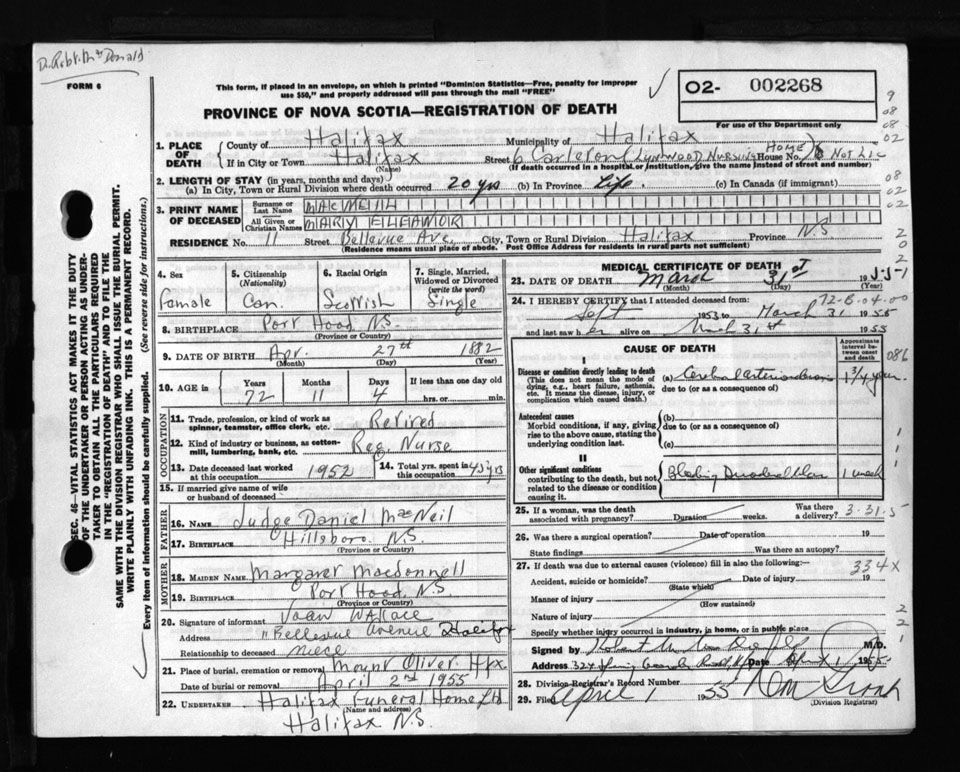 Dr. Robt. Mac Donald
FORM 6
This form, if placed in an envelope, on which is printed "Dominion Statistics—Free, penalty for improper
use $50," and properly addressed will pass through the mail "FREE"
PROVINCE OF NOVA SCOTIA—REGISTRATION OF DEATH
02- 002268
For use of the Department only
1. PLACE OF DEATH
County of Halifax Municipality of Halifax
If in City or Town Halifax Street 6 Carleton (Lynwood Nursing Home) House No. 6 Not Lic
(Name) (If death occurred in a hospital or institution, give the name instead of street and number)
2. LENGTH OF STAY (in years, months and days)
(a) In City, Town or Rural Division where death occurred 20 yrs (b) In Province Life. (c) In Canada (if immigrant)
3. PRINT NAME OF DECEASED
Surname or Last Name MACNEIL
All Given or Christian Names MARY ELEANOR
RESIDENCE No. 11 Street Bellevue Ave. City, Town or Rural Division Halifax Province N.S.
(Residence means usual place of abode. Post Office Address for residents in rural parts not sufficient)
4. Sex Female
5. Citizenship (Nationality) Can.
6. Racial Origin Scottish
7. Single, Married, Widowed or Divorced (write the word) Single
8. BIRTHPLACE Port Hood N.S.
(Province or Country)
9. DATE OF BIRTH Apr. 27th 1882
(Month) (Day) (Year)
10. AGE in Years 72 Months 11 Days 4 If less than one day old hrs. or min.
OCCUPATION
11. Trade, profession, or kind of work as spinner, teamster, office clerk, etc. Retired
12. Kind of industry or business, as cotton-mill, lumbering, bank, etc. Reg. Nurse
13. Date deceased last worked at this occupation 1952
14. Total yrs. spent in this occupation 45 yrs
15. If married give name of wife or husband of deceased
FATHER
16. NAME Judge Daniel MacNeil
17. BIRTHPLACE Hillsboro N.S.
(Province or Country)
MOTHER
18. MAIDEN NAME Margaret Macdonnell
19. BIRTHPLACE Port Hood N.S.
(Province or Country)
20. Signature of informant Joan Wallace
Address 11 Bellevue Avenue Halifax
Relationship to deceased niece
21. Place of burial, cremation or removal Mount Olivet Hfx.
Date of burial or removal April 2nd 1955
22. UNDERTAKER Halifax Funeral Home Ltd
(Name and address)
Halifax N.S.
MEDICAL CERTIFICATE OF DEATH
23. DATE OF DEATH March 31st 1955
(Month) (Day) (Year)
24. I HEREBY CERTIFY that I attended deceased from: 72-B-04-00
Sept 1953 to March 31 1955
and last saw her alive on March 31st 1955
CAUSE OF DEATH
Approximate interval between onset and death
086
I
Disease or condition directly leading to death
(This does not mean the mode of dying, e.g., heart failure, asthenia, etc. It means the disease, injury, or complication which caused death.)
(a) Cerebral Arteriosclerosis 1 3/4 years
due to (or as a consequence of)
Antecedent causes
Morbid conditions, if any, giving rise to the above cause, stating the underlying condition last.
(b)
due to (or as a consequence of)
(c)
II
Other significant conditions
contributing to the death, but not related to the disease or condition causing it.
Bleeding Duodenal Ulcer 1 week
25. If a woman, was the death associated with pregnancy? Duration weeks. Was there a delivery? 3.31.5
26. Was there a surgical operation? Date of operation 19
State findings Was there an autopsy?
27. If death was due to external causes (violence) fill in also the following:— 334x
Accident, suicide or homicide? Date of injury 19
(State which)
Manner of injury
(How sustained)
Nature of injury
Specify whether injury occurred in industry, in home, or in public place
Signed by Robert M. MacDonald M.D.
Address 324 Spring Garden Road Date April 1 1955
28. Division Registrar's Record Number
29. Filed April 1 1955
(Division Registrar)
SEC. 46—VITAL STATISTICS ACT MAKES IT THE DUTY
OF THE UNDERTAKER OR PERSON ACTING AS UNDER-
TAKER TO OBTAIN ALL THE PARTICULARS REQUIRED
IN THE "REGISTRATION OF DEATH" AND TO FILE THE
SAME WITH THE DIVISION REGISTRAR WHO SHALL ISSUE THE BURIAL PERMIT.
WRITE PLAINLY WITH UNFADING INK. THIS IS A PERMANENT RECORD.
Every item of information should be carefully supplied. (See reverse side for instructions.)
9
08
08
02
08
02
02
2
0
2
1
1
2
2
1